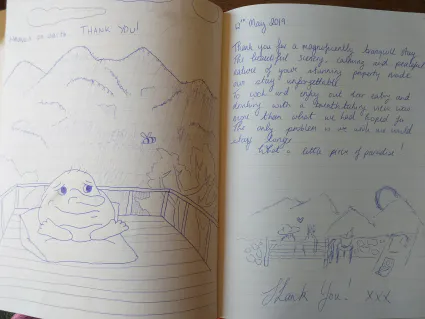 THANK YOU!
10th May 2019
Thank you for a magnificently tranquil stay
The beautiful scenery, calming and peaceful
nature of your stunning property made
our stay unforgettable.
To cook and enjoy our dear eating and
drinking with a breathtaking view was
more than what we had hoped for
The only problem is we wish we could
stay longer
What a little piece of paradise!
Thank You! xxx